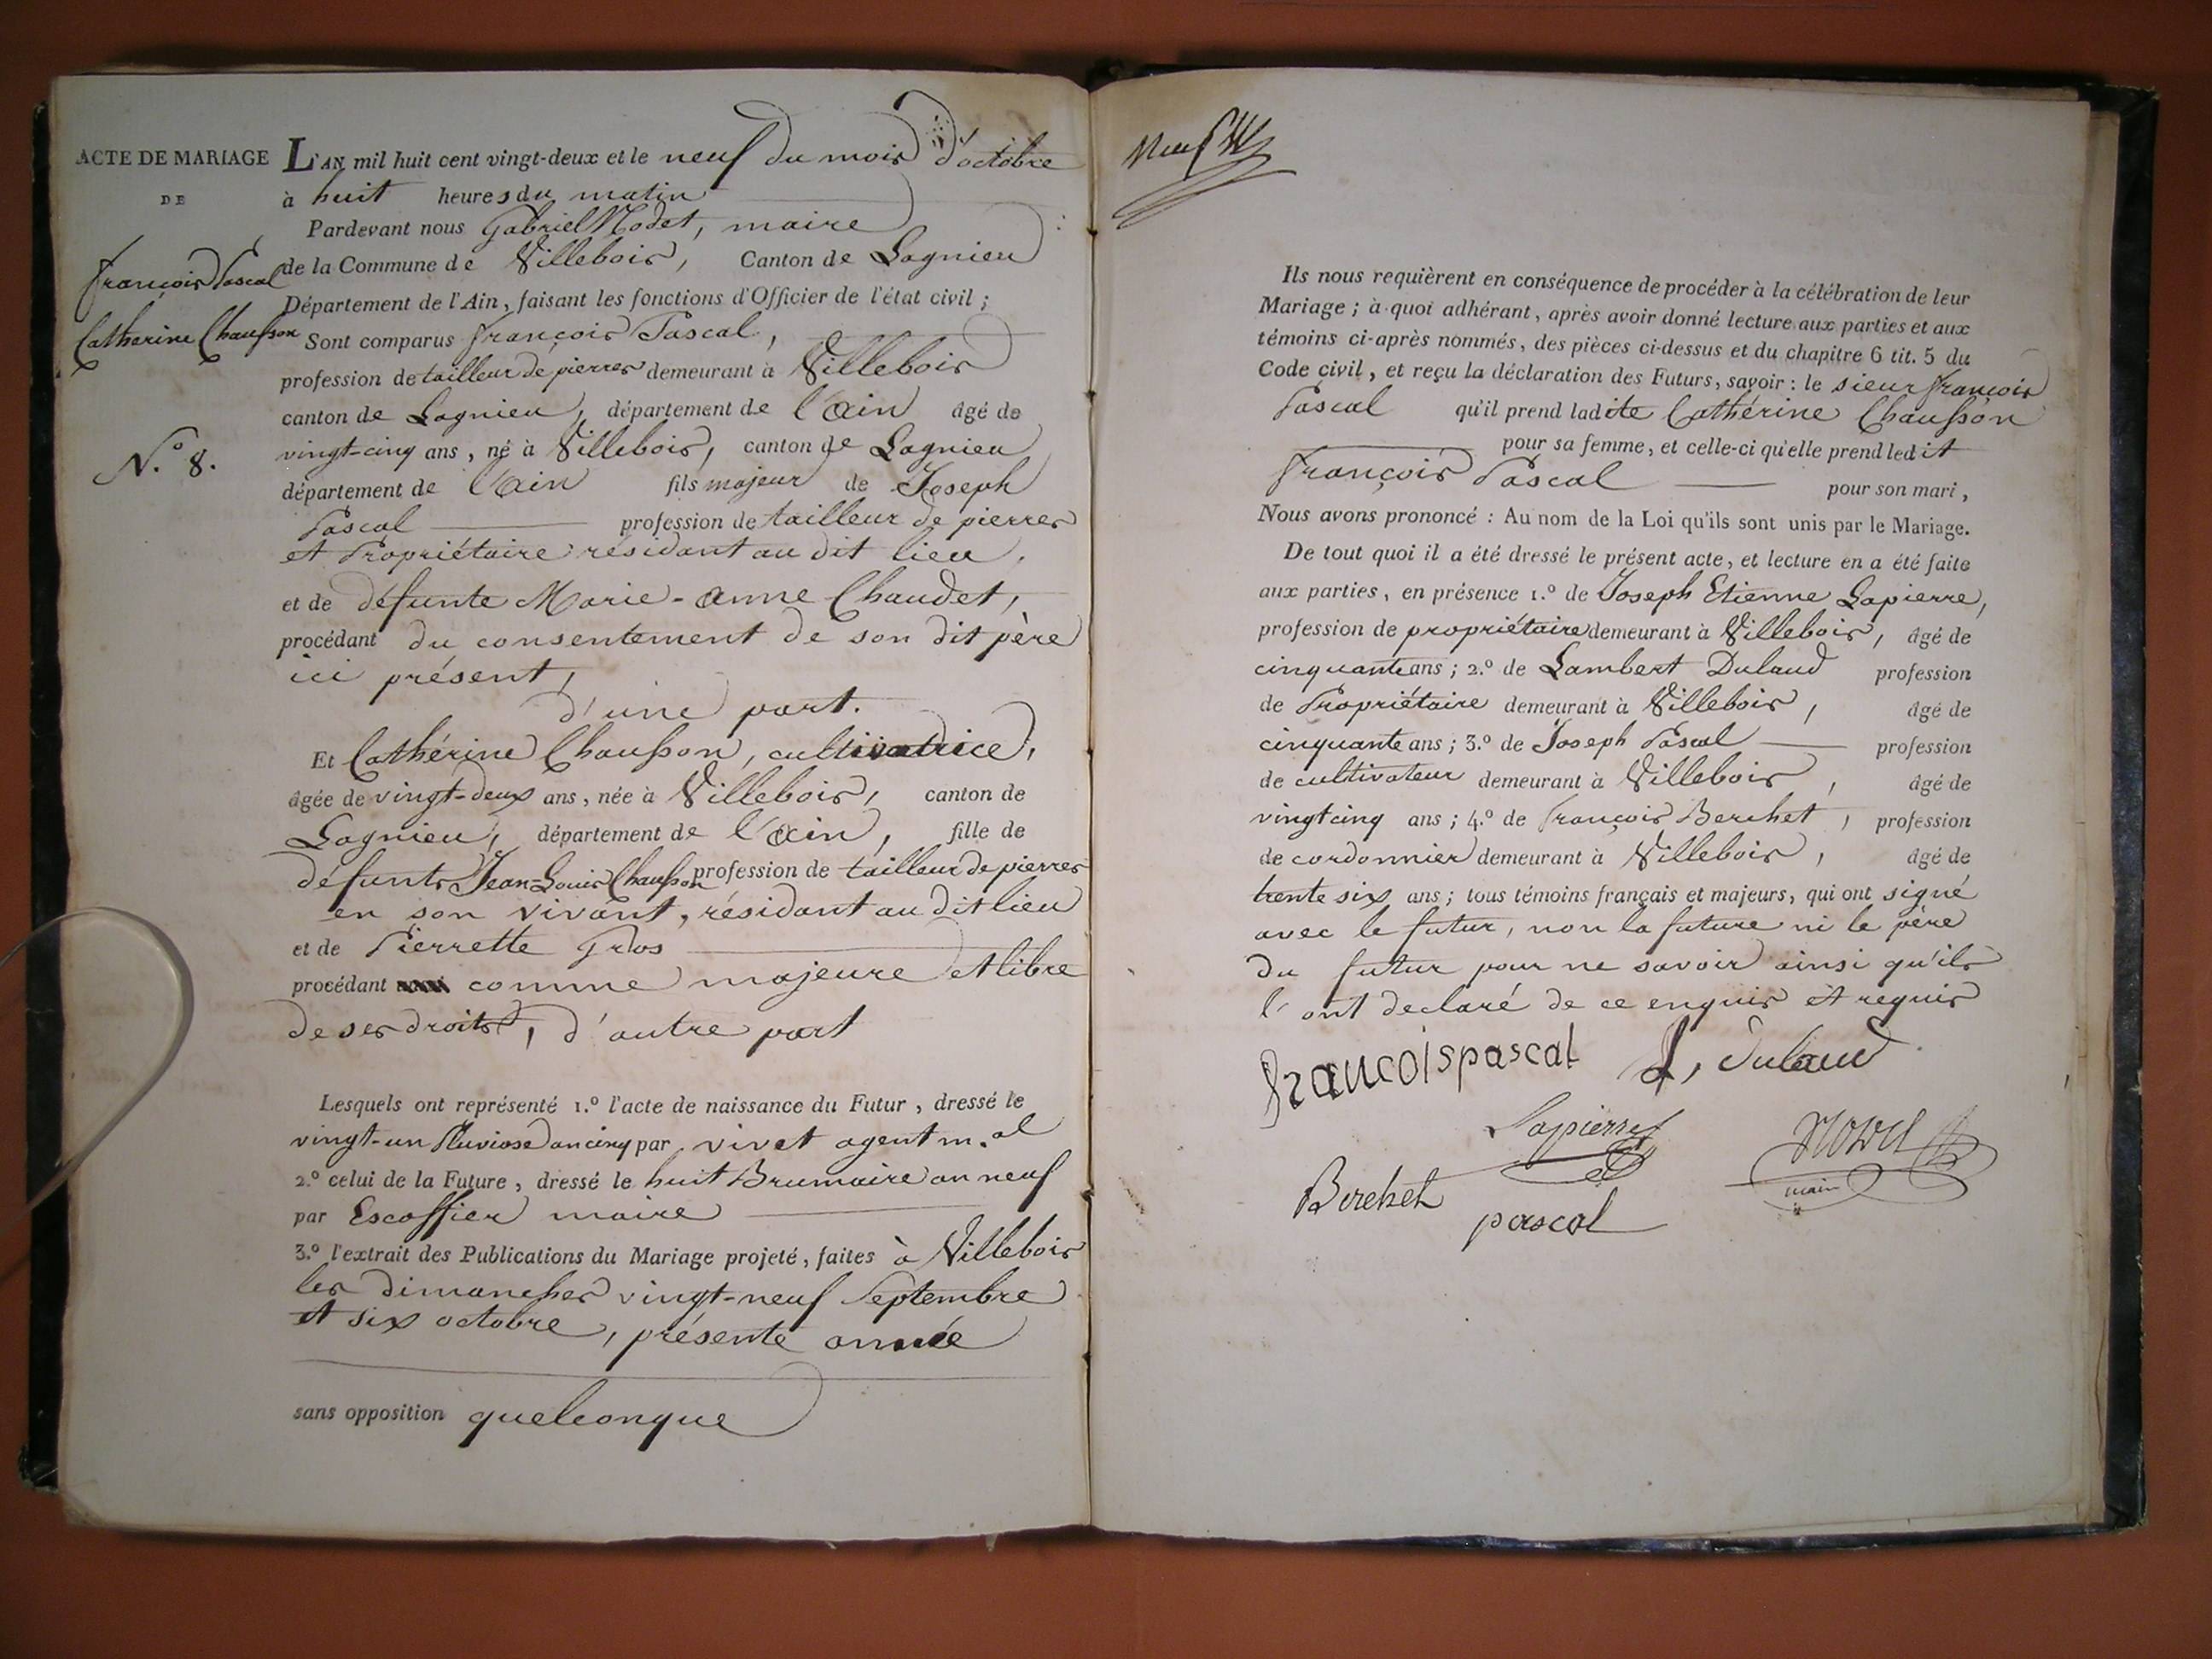 ACTE DE MARIAGE
DE
François Pascal
Catherine Chausson
N.º 8.
L'AN mil huit cent vingt-deux et le neuf du mois d'octobre
à huit heures du matin
Pardevant nous Gabriel Modet, maire
de la Commune de Villebois, Canton de Lagnieu
Département de l'Ain, faisant les fonctions d'Officier de l'état civil ;
Sont comparus françois Pascal,
profession de tailleur de pierres demeurant à Villebois
canton de Lagnieu, département de l'Ain âgé de
vingt-cinq ans, né à Villebois, canton de Lagnieu
département de l'Ain fils majeur de Joseph
Pascal profession de tailleur de pierres
et Propriétaire résidant au dit lieu,
et de défunte Marie-Anne Chaudet,
procédant du consentement de son dit père
ici présent,
d'une part.
Et Cathérine Chausson, cultivatrice,
âgée de vingt-deux ans, née à Villebois, canton de
Lagnieu, département de l'Ain, fille de
défunts Jean-Louis Chausson profession de tailleur de pierres
en son vivant, résidant au dit lieu
et de Pierrette Gros
procédant comme majeure et libre
de ses droits, d'autre part
Lesquels ont représenté 1.º l'acte de naissance du Futur, dressé le
vingt-un Pluviose an cinq par vivet agent m.al
2.º celui de la Future, dressé le huit Brumaire an neuf
par Escoffier maire
3.º l'extrait des Publications du Mariage projeté, faites à Villebois
les dimanches vingt-neuf Septembre
et six octobre, présente année
sans opposition quelconque
Neuf
Ils nous requièrent en conséquence de procéder à la célébration de leur
Mariage ; à quoi adhérant, après avoir donné lecture aux parties et aux
témoins ci-après nommés, des pièces ci-dessus et du chapitre 6 tit. 5 du
Code civil, et reçu la déclaration des Futurs, savoir : le sieur françois
Pascal qu'il prend ladite Cathérine Chausson
pour sa femme, et celle-ci qu'elle prend ledit
françois Pascal pour son mari,
Nous avons prononcé : Au nom de la Loi qu'ils sont unis par le Mariage.
De tout quoi il a été dressé le présent acte, et lecture en a été faite
aux parties, en présence 1.º de Joseph Etienne Lapierre,
profession de propriétaire demeurant à Villebois, âgé de
cinquante ans ; 2.º de Lambert Dulaud profession
de Propriétaire demeurant à Villebois, âgé de
cinquante ans ; 3.º de Joseph Pascal profession
de cultivateur demeurant à Villebois, âgé de
vingt cinq ans ; 4.º de françois Berchet, profession
de cordonnier demeurant à Villebois, âgé de
trente six ans ; tous témoins français et majeurs, qui ont signé
avec le futur, non la future ni le père
du futur pour ne savoir ainsi qu'ils
l'ont declaré de ce enquis et requis
francoispascal L, Dulaud
Lapierre Modet
maire
Berchet
pascal